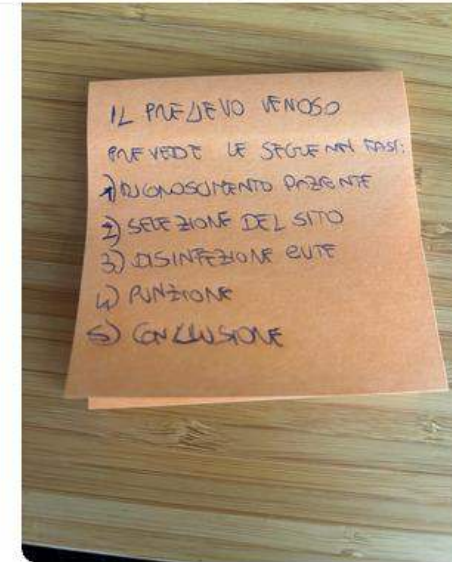 IL PRELIEVO VENOSO
PREVEDE LE SEGUENTI FASI:
1) RICONOSCIMENTO PAZIENTE
2) SELEZIONE DEL SITO
3) DISINFEZIONE CUTE
4) PUNZIONE
5) CONCLUSIONE